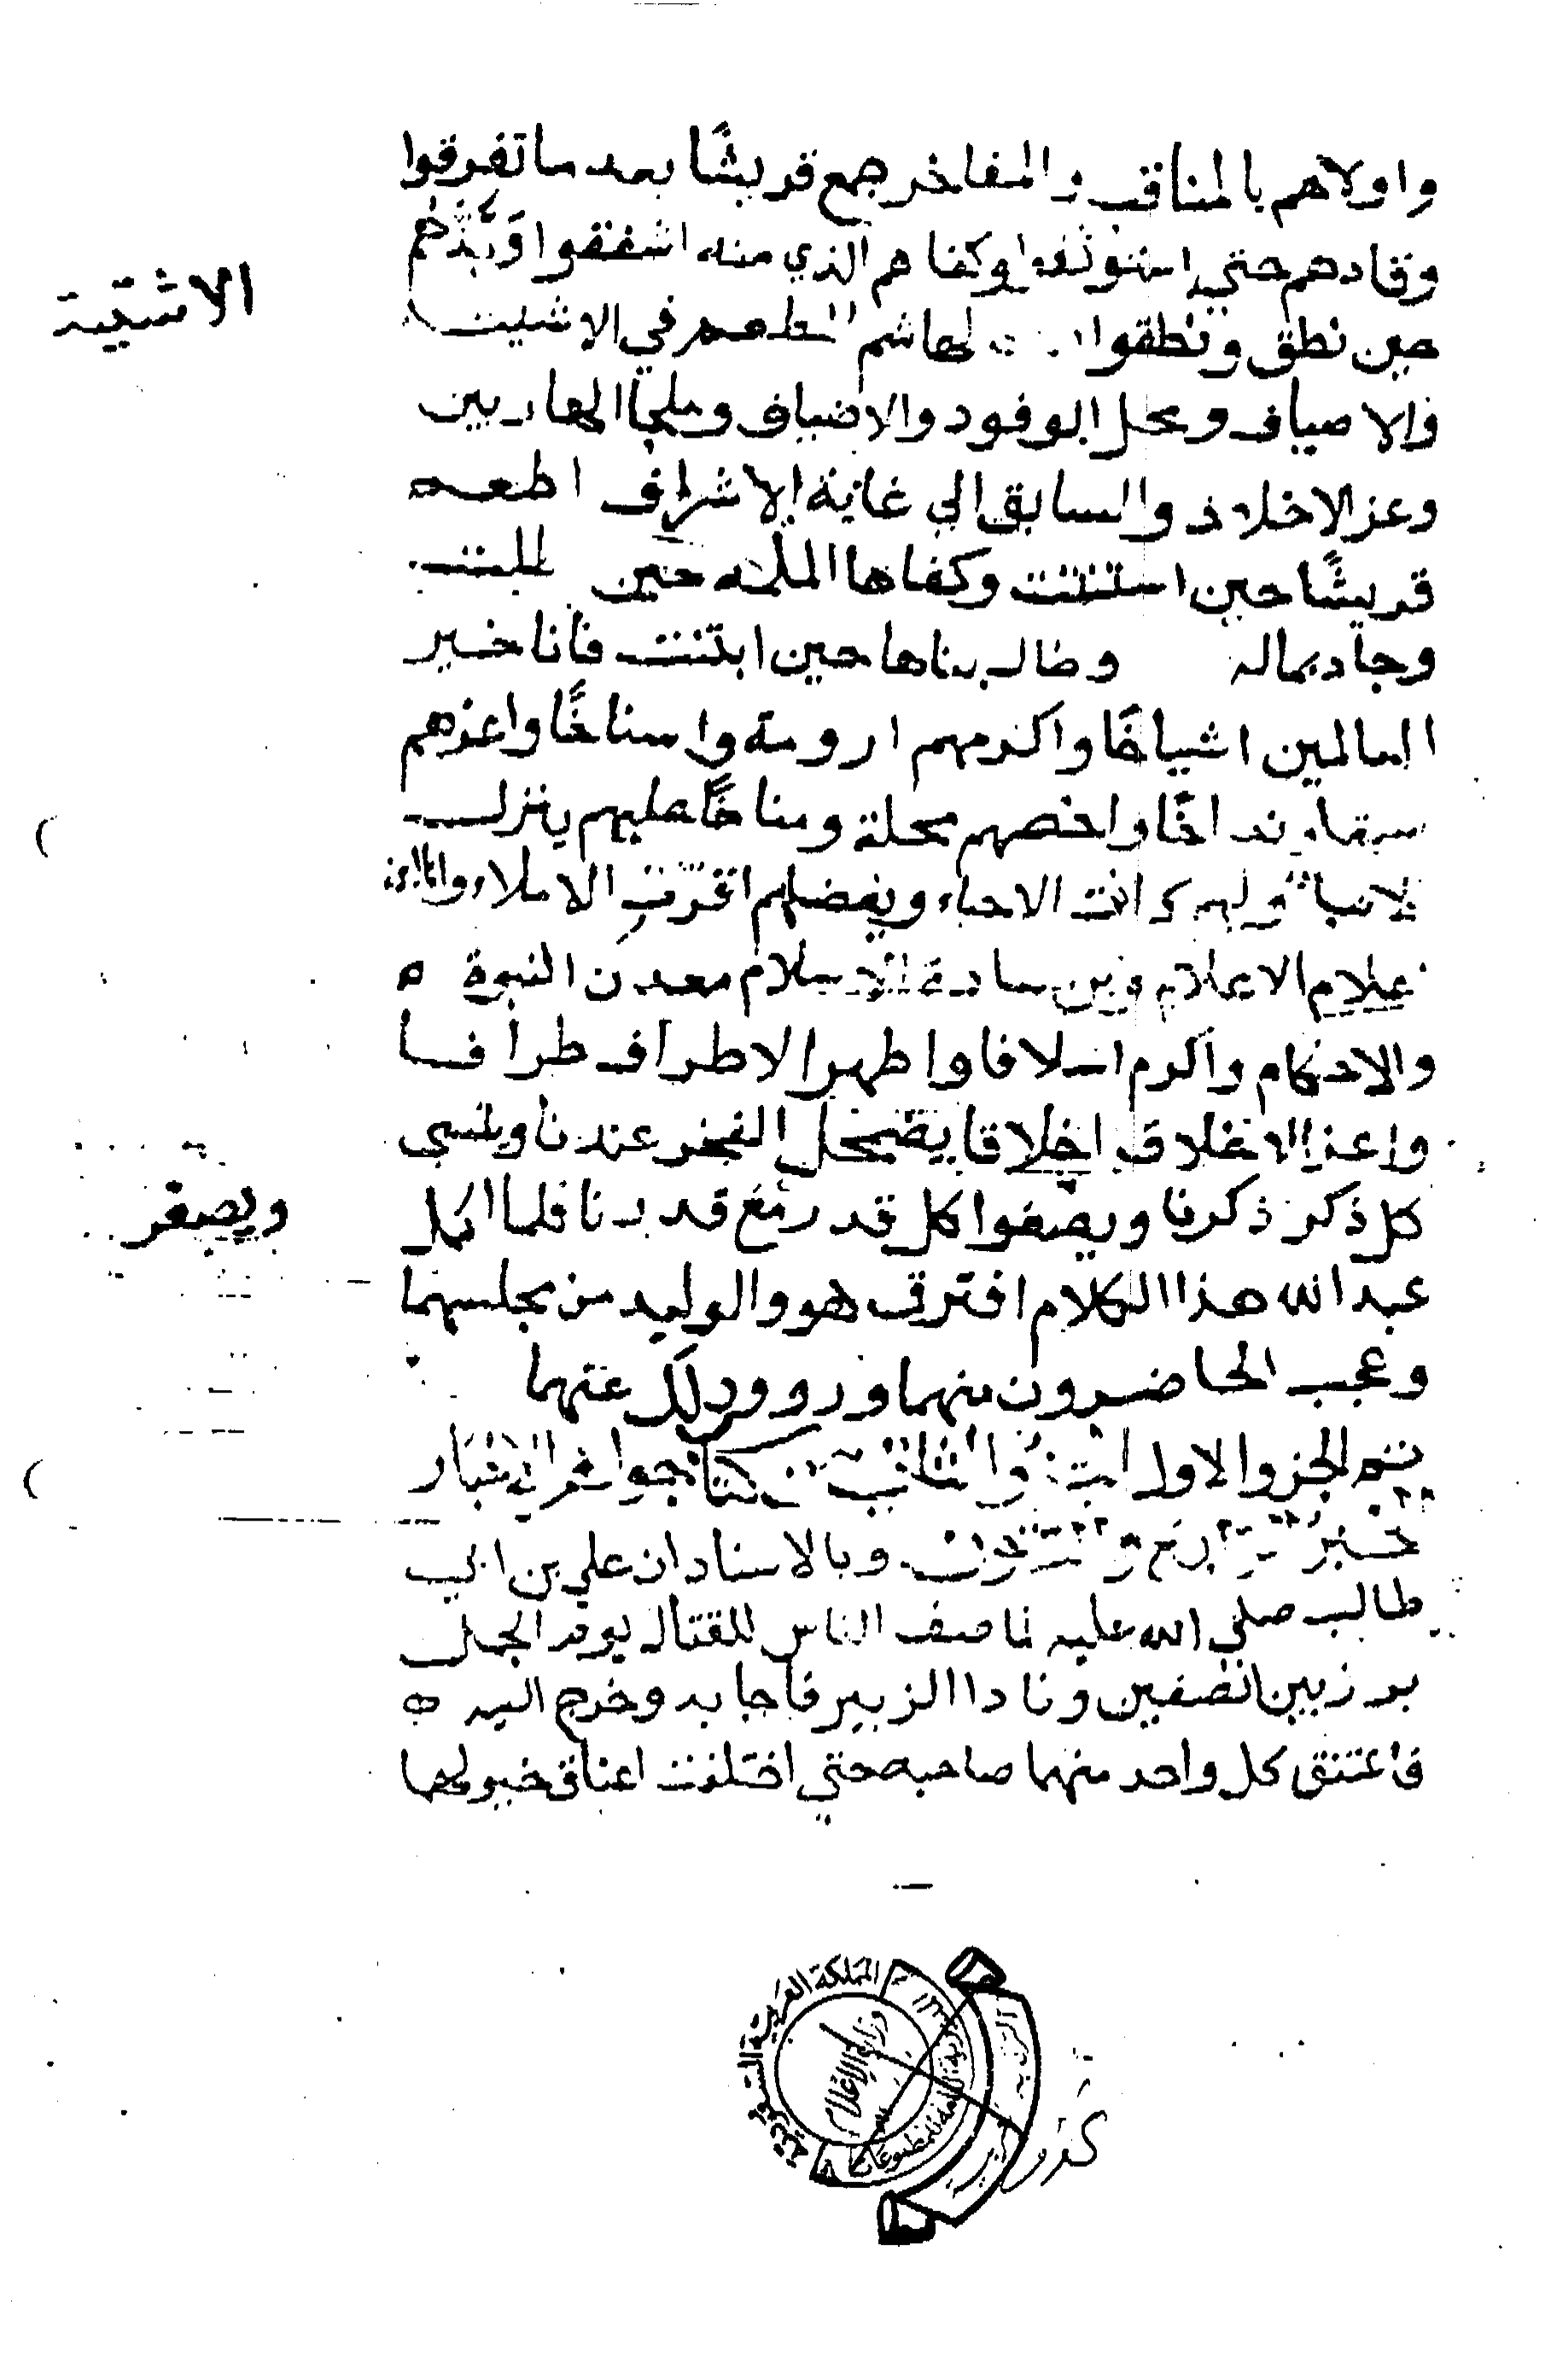 واولاهم بالمناقب والمفاخر جمع قريشًا بعد ما تفرقوا
وقادهم حتي استوثقوا وكفاهم الذي منه اشفقوا وبذهم
الاشتية
حين نطق ونطقوا لهاشم المطعم في الاشيت
والاصياف ومحل الوفود والاضياف وملجا الهاربين
وعز الاخلاف والسابق الي غاية الاشراف اطعم
قريشًا حين استنتت وكفاها الملمه حين
وجاد بماله وطال بناها حين ابتنت فانا خير
العالمين اشياخًا واكرمهم ارومة واسناخًا واعزهم
واخصهم محلة ومناخًا عليهم ينزل
الاحباء وبفضلهم الاملاء وانا ابن
علام الاعلام وبن سادة الاسلام معدن النبوة ه
والاحكام واكرم اسلافا واطهر الاطراف طرافا
واعز الاخلاق اخلاقا يضمحل الفخر عندنا وينسي
كل ذكر ذكرنا ويصغوا كل قدر مع قدرنا فلما اكمل
ويصغر
عبد الله هذا الكلام افترق هو والوليد من مجلسهما
وعجب الحاضرون منهما ورووا ذلك عنهما
تم الجزو الاول والثاني كتاب جواهر الاخبار
وبالاسناد ان علي بن ابي
طالب صلي الله عليه لما صف الناس للقتال يوم الجمل
برز بين الصفين ونادا الزبير فاجابه وخرج اليه ه
فاعتنق كل واحد منهما صاحبه حتي اختلفت اعناق خيولهما
المملكة العربية السعودية
وزارة الإعلام